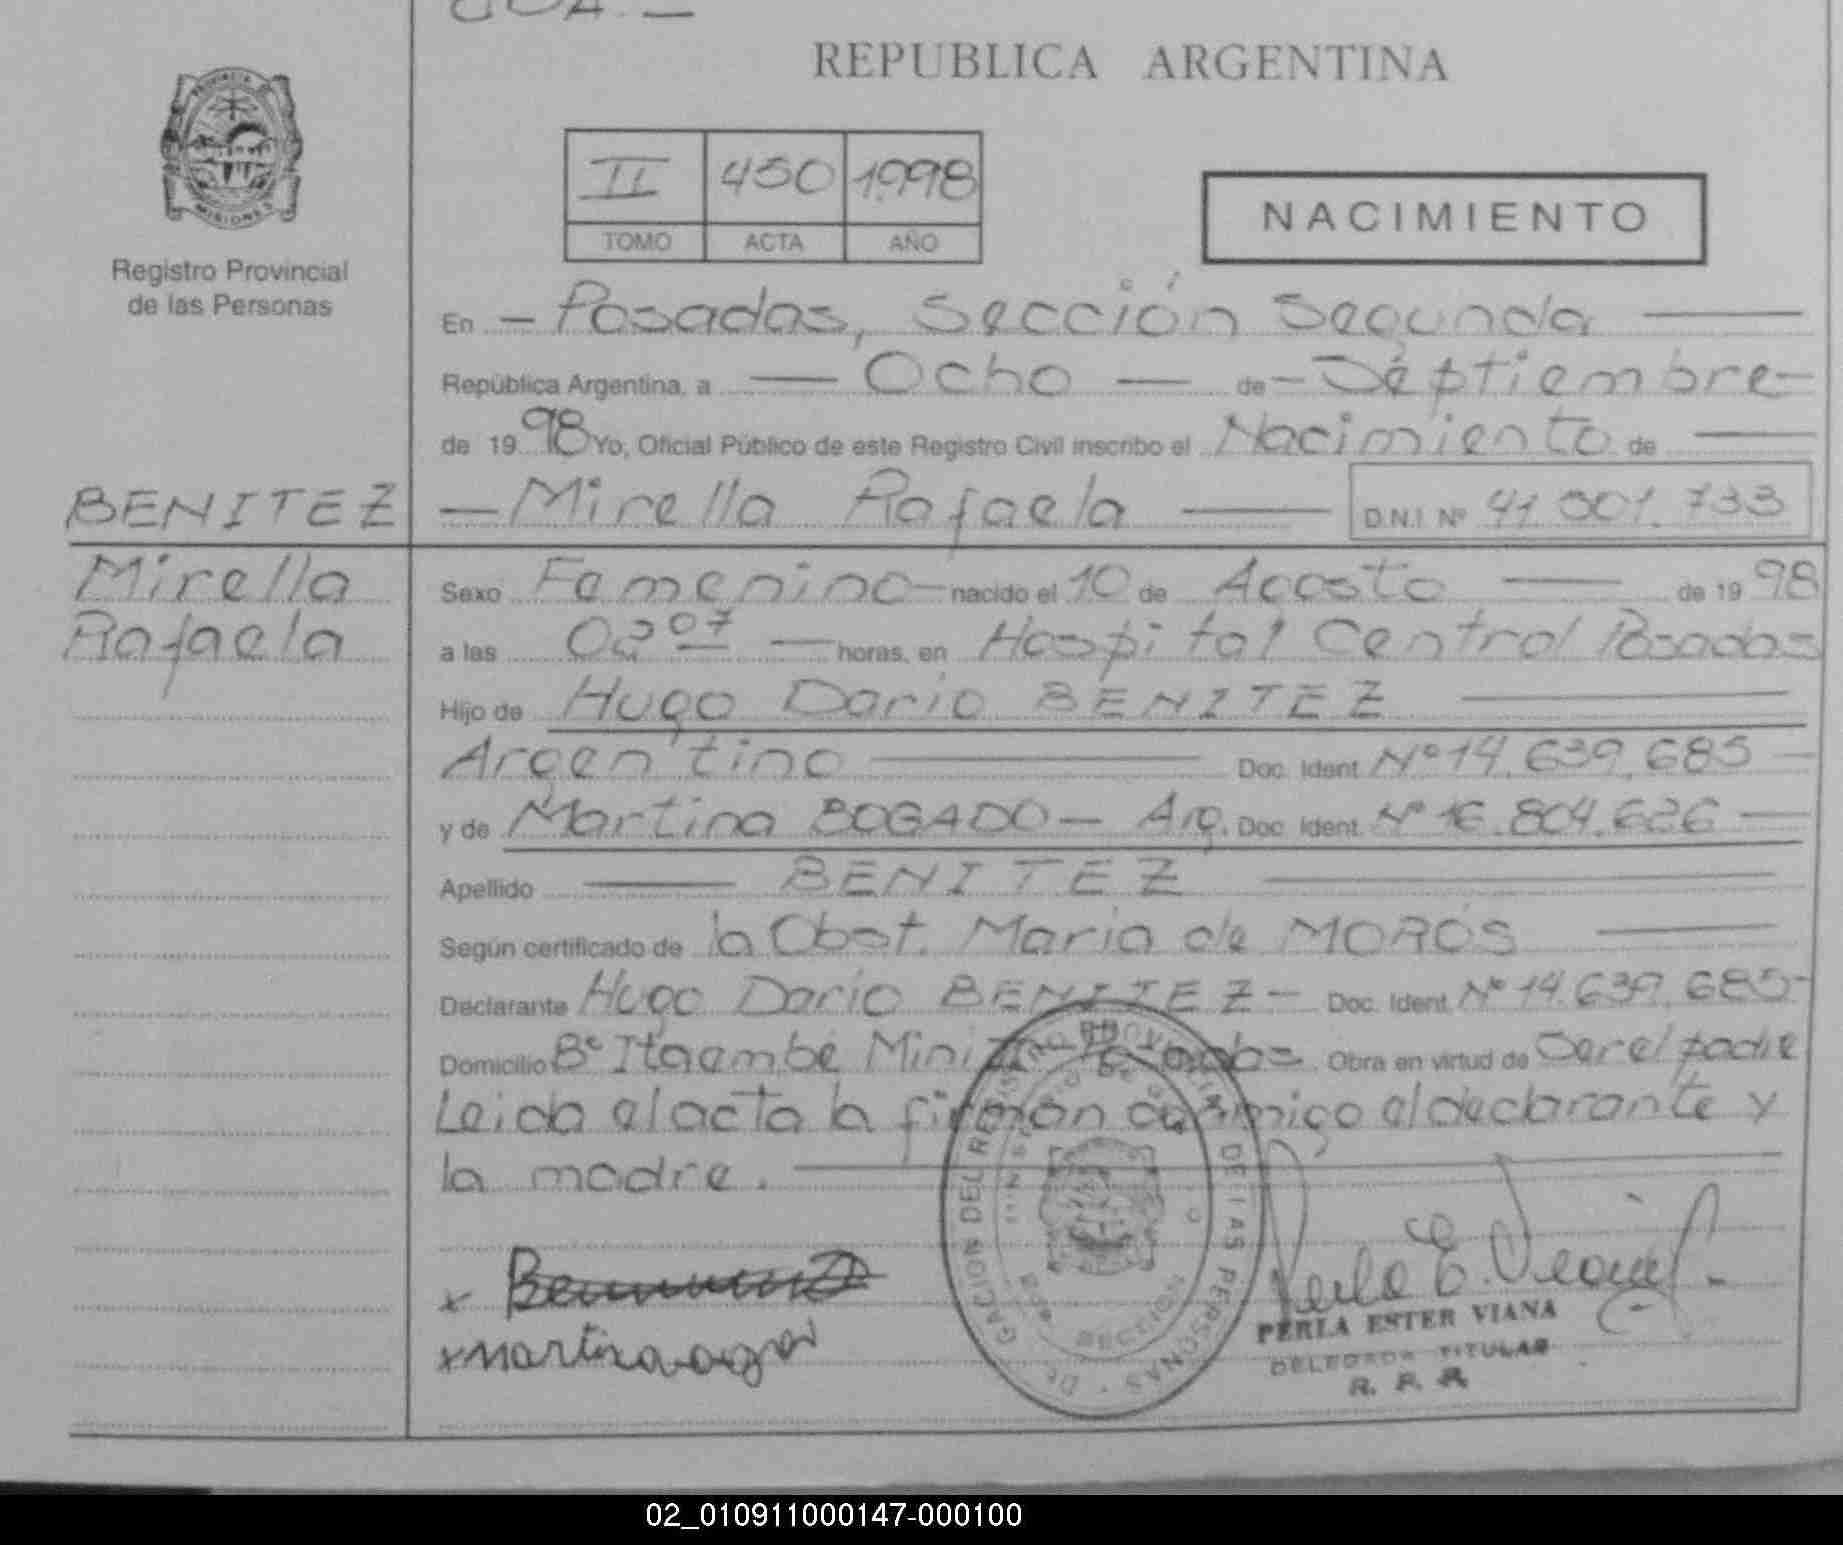 REPUBLICA ARGENTINA
PROVINCIA
MISIONES
Registro Provincial
de las Personas
II 450 1998
TOMO ACTA AÑO
NACIMIENTO
En — Posadas, Sección Segunda —
República Argentina, a — Ocho — de — Septiembre —
de 1998 Yo, Oficial Público de este Registro Civil inscribo el Nacimiento de —
BENITEZ
Mirella
Rafaela
— Mirella Rafaela — D.N.I. Nº 41.301.733
Sexo Femenino — nacido el 10 de Agosto — de 1998
a las 07 — horas, en Hospital Central Posadas
Hijo de Hugo Dario BENITEZ —
Argentino — Doc. Ident. Nº 14.639.685 —
y de Martina BOGADO — Arg. Doc. Ident. Nº 16.804.626 —
Apellido — BENITEZ —
Según certificado de la Obst. Maria de MORÓS —
Declarante Hugo Dario BENITEZ — Doc. Ident. Nº 14.639.685 —
Domicilio Bº Itaembé Mini Obra en virtud de Ser el padre
Leida el acta la firman conmigo el declarante y
la madre.
DELEGACION DEL REGISTRO PROVINCIAL DE LAS PERSONAS
SECCION
x
x martina
Perla E. Viana
PERLA ESTER VIANA
DELEGADA TITULAR
R. P. P.
02_010911000147-000100